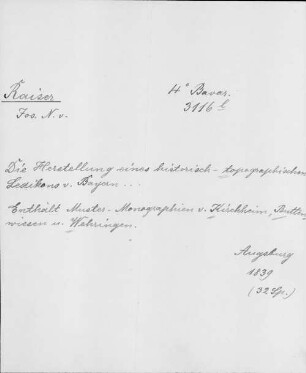 Raiser
Jos. N. v.
4° Bavar.
3116 l
Die Herstellung eines historisch-topographischen
Lexikons v. Bayern ...
Enthält Muster-Monographien v. Kirchheim, Butten-
wiesen u. Wehringen.
Augsburg
1839
(32 Sp.)